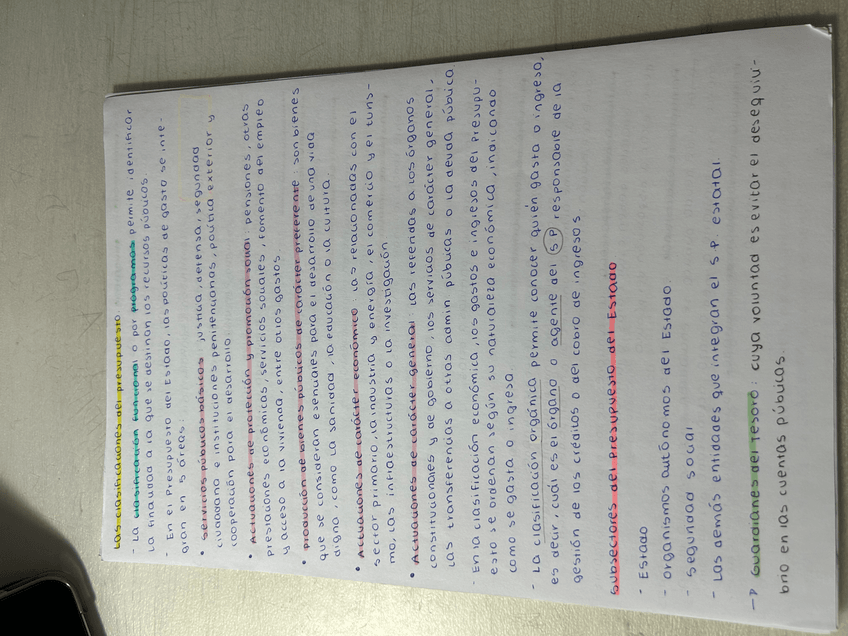 Las clasificaciones del presupuesto
- La clasificación funcional o por programas permite identificar
la finalidad a la que se destinan los recursos púbicos.
- En el Presupuesto del Estado, las políticas de gasto se inte-
gran en 5 áreas:
• Servicios púbicos básicos: justicia, defensa, seguridad
ciudadana e instituciones penitenciarias, política exterior y
cooperación para el desarrollo.
• Actuaciones de protección y promoción social: pensiones, otras
prestaciones económicas, servicios sociales, fomento del empleo
y acceso a la vivienda, entre otros gastos.
• Producción de bienes públicos de carácter preferente: son bienes
que se consideran esenciales para el desarrollo de una vida
digna, como la sanidad, la educación o la cultura.
• Actuaciones de carácter económico: las relacionadas con el
sector primario, la industria y energía, el comercio y el turis-
mo, las infraestructuras o la investigación
• Actuaciones de carácter general: las referidas a los órganos
constitucionales y de gobierno, los servicios de carácter general,
las transferencias a otras admin. púbicas o la deuda púbica.
- En la clasificación económica, los gastos e ingresos del presupu-
esto se ordenan según su naturaleza económica, indicando
como se gasta o ingresa.
- La clasificación orgánica permite conocer quién gasta o ingresa,
es decir, cuál es el órgano o agente del S.P. responsable de la
gestión de los créditos o del cobro de ingresos
Subsectores del Presupuesto del Estado
- Estado
- Organismos autónomos del Estado.
- Seguridad social
- Las demás entidades que integran el S.P. estatal.
→ Guardianes del Tesoro: cuya voluntad es evitar el desequili-
brio en las cuentas púbicas.